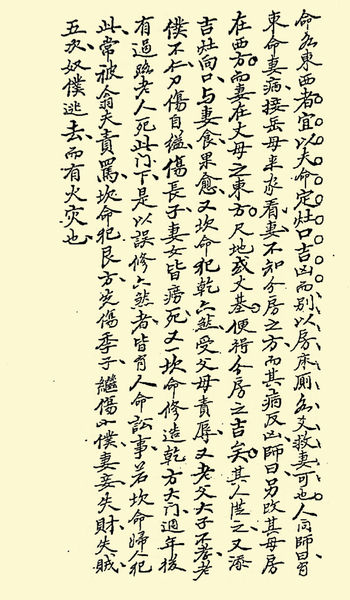 命各東西者宜以夫命定灶口吉凶而別以房床厠各爻救妻可也人问師曰有
東命妻病接岳母來家看妻不知分房之方而其病反凶師曰另改其母房
在西方而妻在丈母之東方尺地或丈基便得分房之吉矣其人從之又添
吉灶向口与妻食果愈又坎命犯乾六煞受父母責辱又老父大子不孝老
僕不仁刀傷自縊傷長子妻女皆癆死又一坎命修造乾方大門週年後
有過路老人死此門下是以誤修六煞者皆有人命訟事若坎命婦人犯
此常被翁夫責罵坎命犯艮方先傷季子繼傷小僕妻妾失財失賊
五次奴僕逃去而有火災也